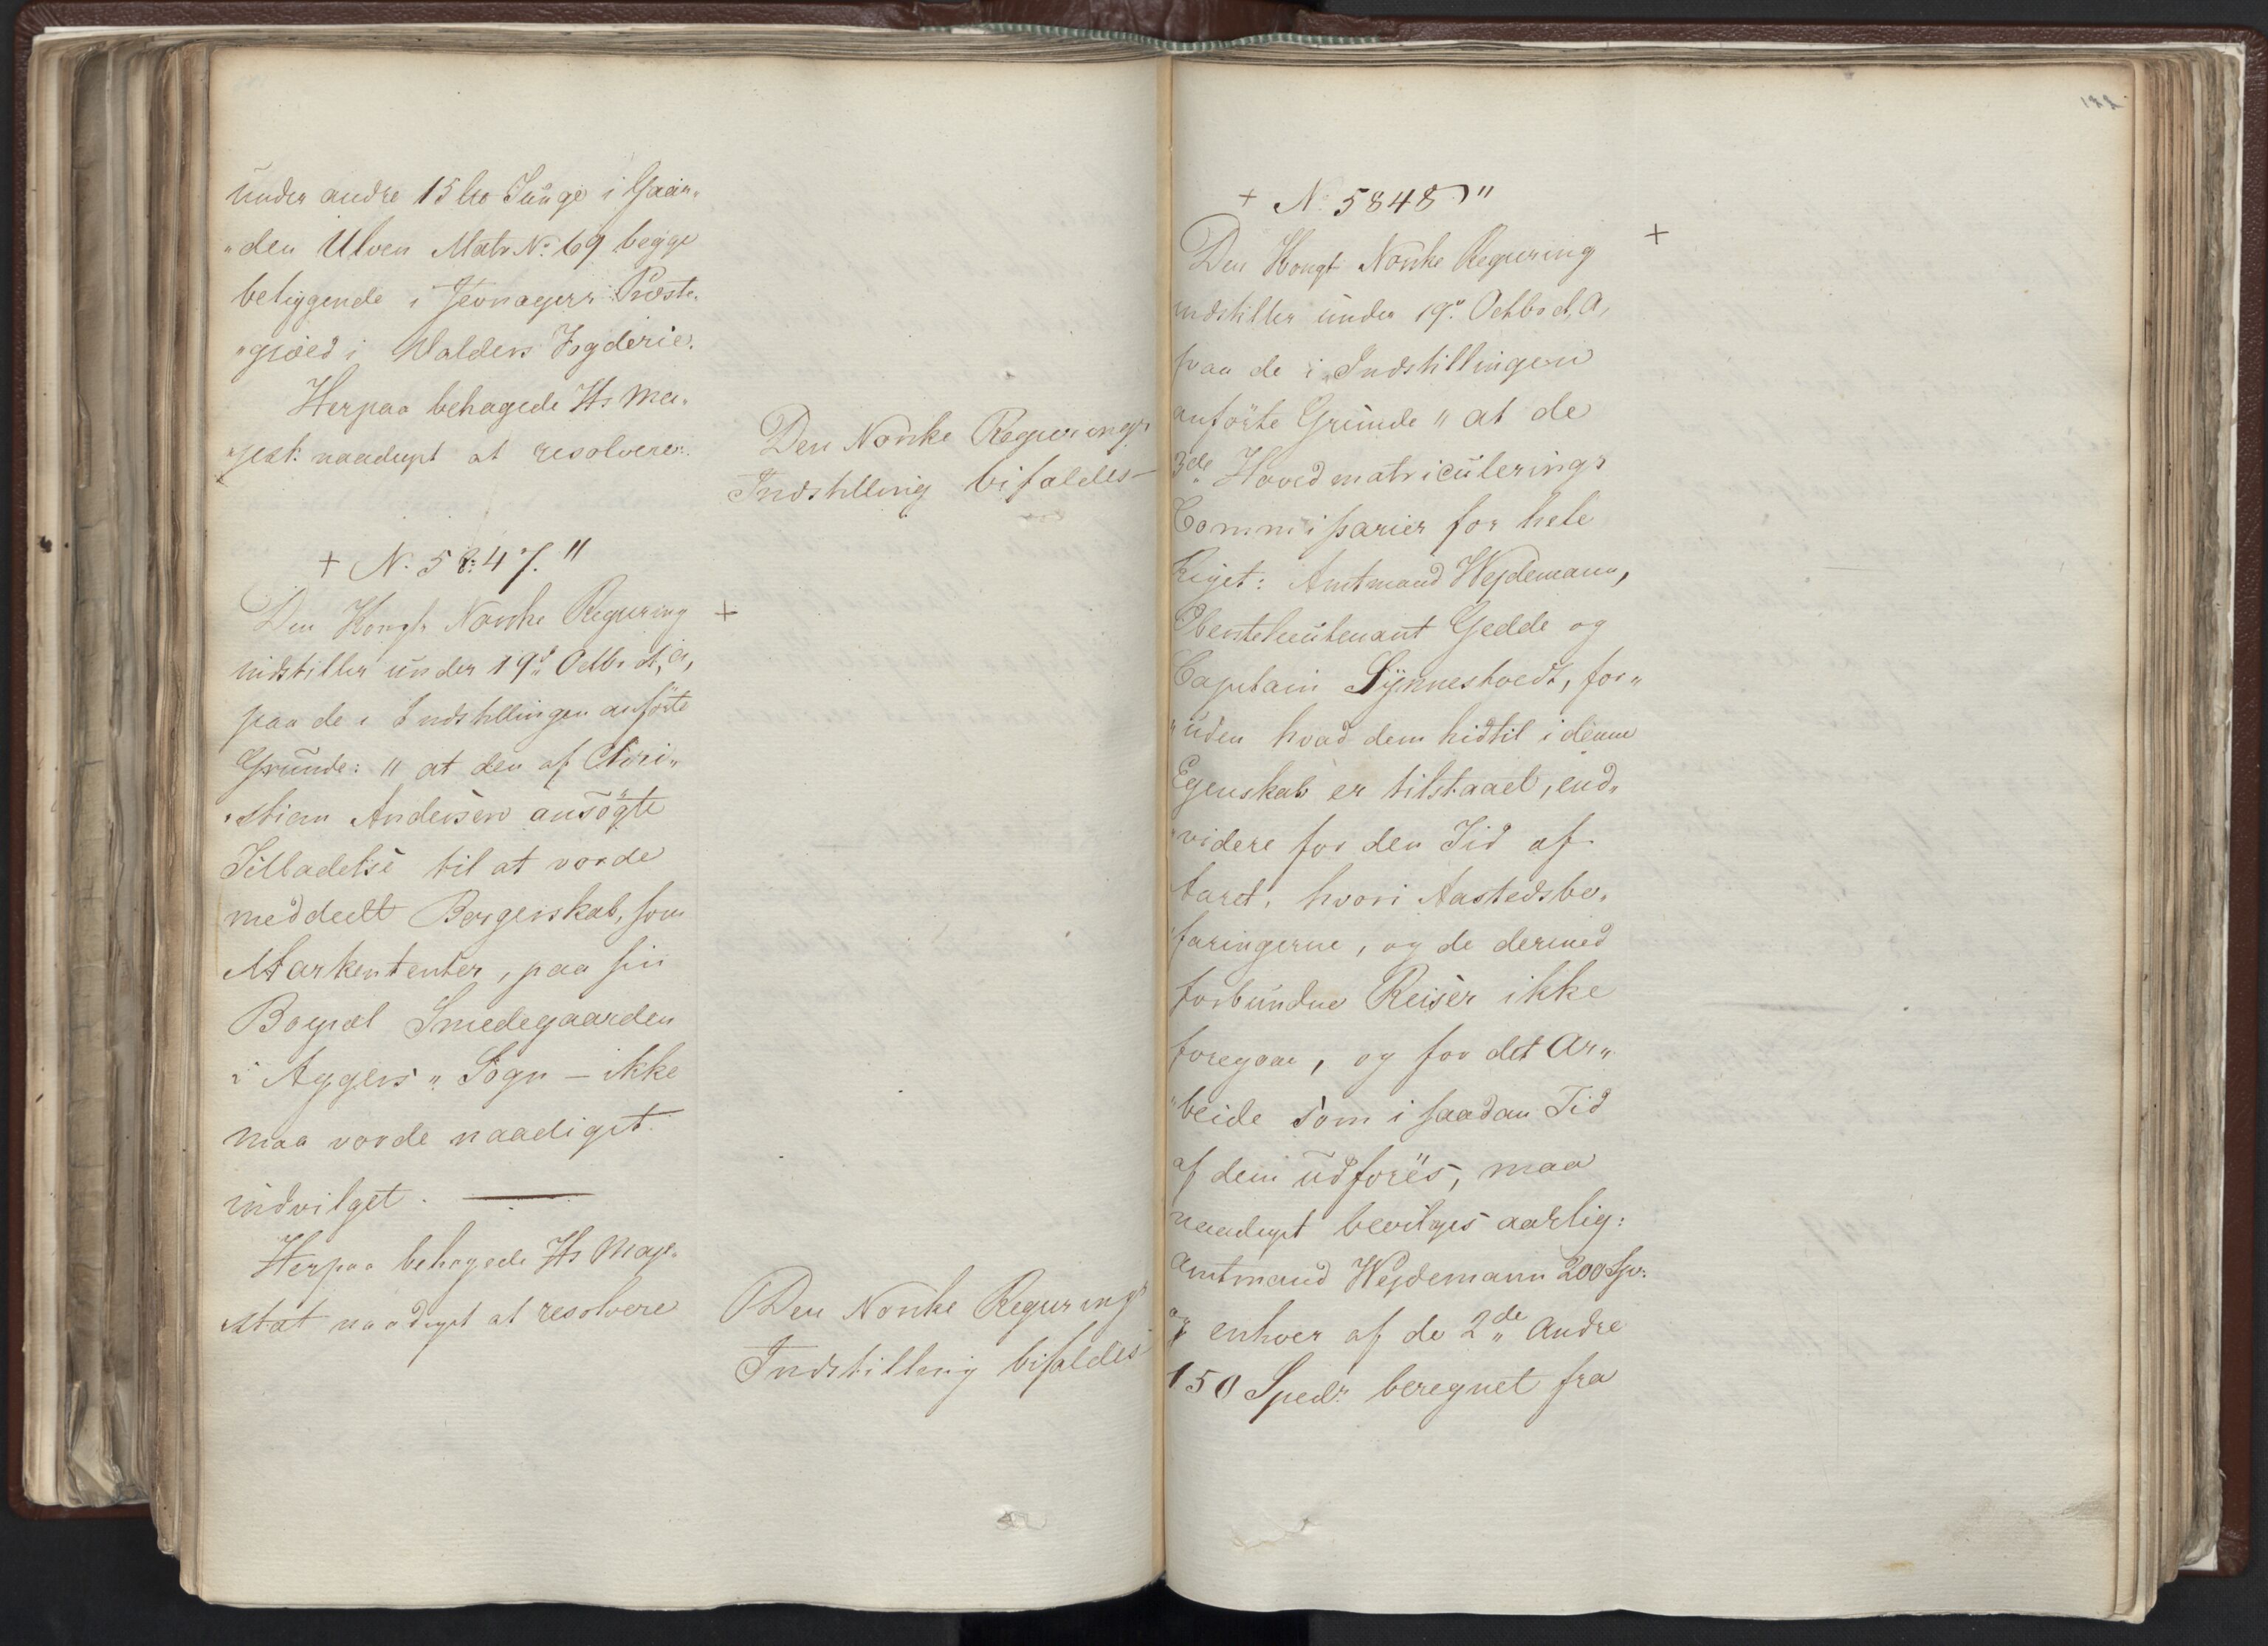 under andre 15 Tunge i Gaar„
„den Ulven Matr N: 69 begge
beliggende i Jevnagers Præste„
„gjæld i Walders Fogderie.
Herpaa behagede Hs Ma„
„jest: naadigst at resolvere:
Den Norske Regjerings
Indstilling bifaldes —
+ N. 5847. "
Den Kongl. Norske Regjering +
indstiller under 19d Octbr d. a,
paa de i Indstillingen anförte
Grunde: " at den af Chri„
„stian Andersen ansögte
Tilladelse til at vorde
meddeelt Borgerskab, som
Markententer, paa sin
Bopæl Smedegaarden
i Aggers„ Sogn — ikke
maa vorde naadigst
indvilget. —
Herpaa behagede Hs Maje„
stæt naadigst at resolvere
Den Norske Regjerings
Indstilling bifaldes
122
+ N. 5848 "
Den Kongl Norske Regjering +
indstiller under 19d Octbr d. a,
paa de i Indstillingen
anförte Grunde " at de
3de Hovedmatriculerings
Commissarier for hele
Riget: Amtmand Wejdemann,
Oberstelieutenant Gedde og
Capitain Synnestvedt, for„
„uden hvad dem hidtil i denne
Egenskab er tilstaaet, end„
„videre for den Tid af
Aaret, hvori Aastedsbe„
faringerne, og de dermed
forbundne Reiser ikke
foregaae, og for det Ar„
„beide som i saadan Tid
af dem udföres, maa
naadigst bevilges aarlig:
Amtmand Wejdemann 200 Sp:
og enhver af de 2de Andre
150 Spedr beregnet fra